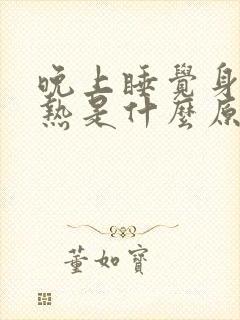 晚上睡覺身
熱是什麼原
董如寶